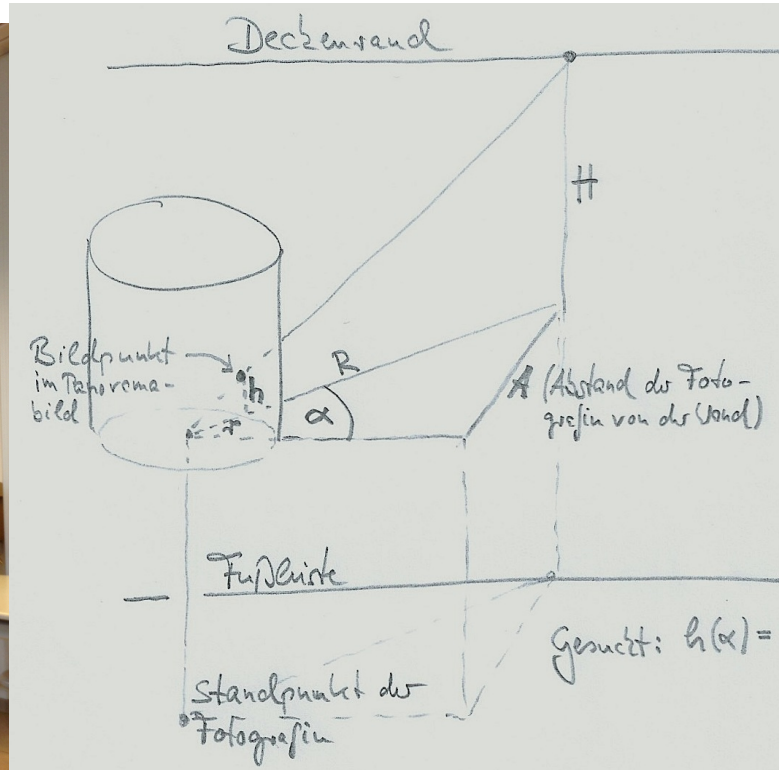 Deckenrand
H
Bildpunkt
im Panorama-
bild
h
R
α
r
A (Abstand der Foto-
grafin von der Wand)
Fußleiste
Gesucht: h(α) =
Standpunkt der
Fotografin